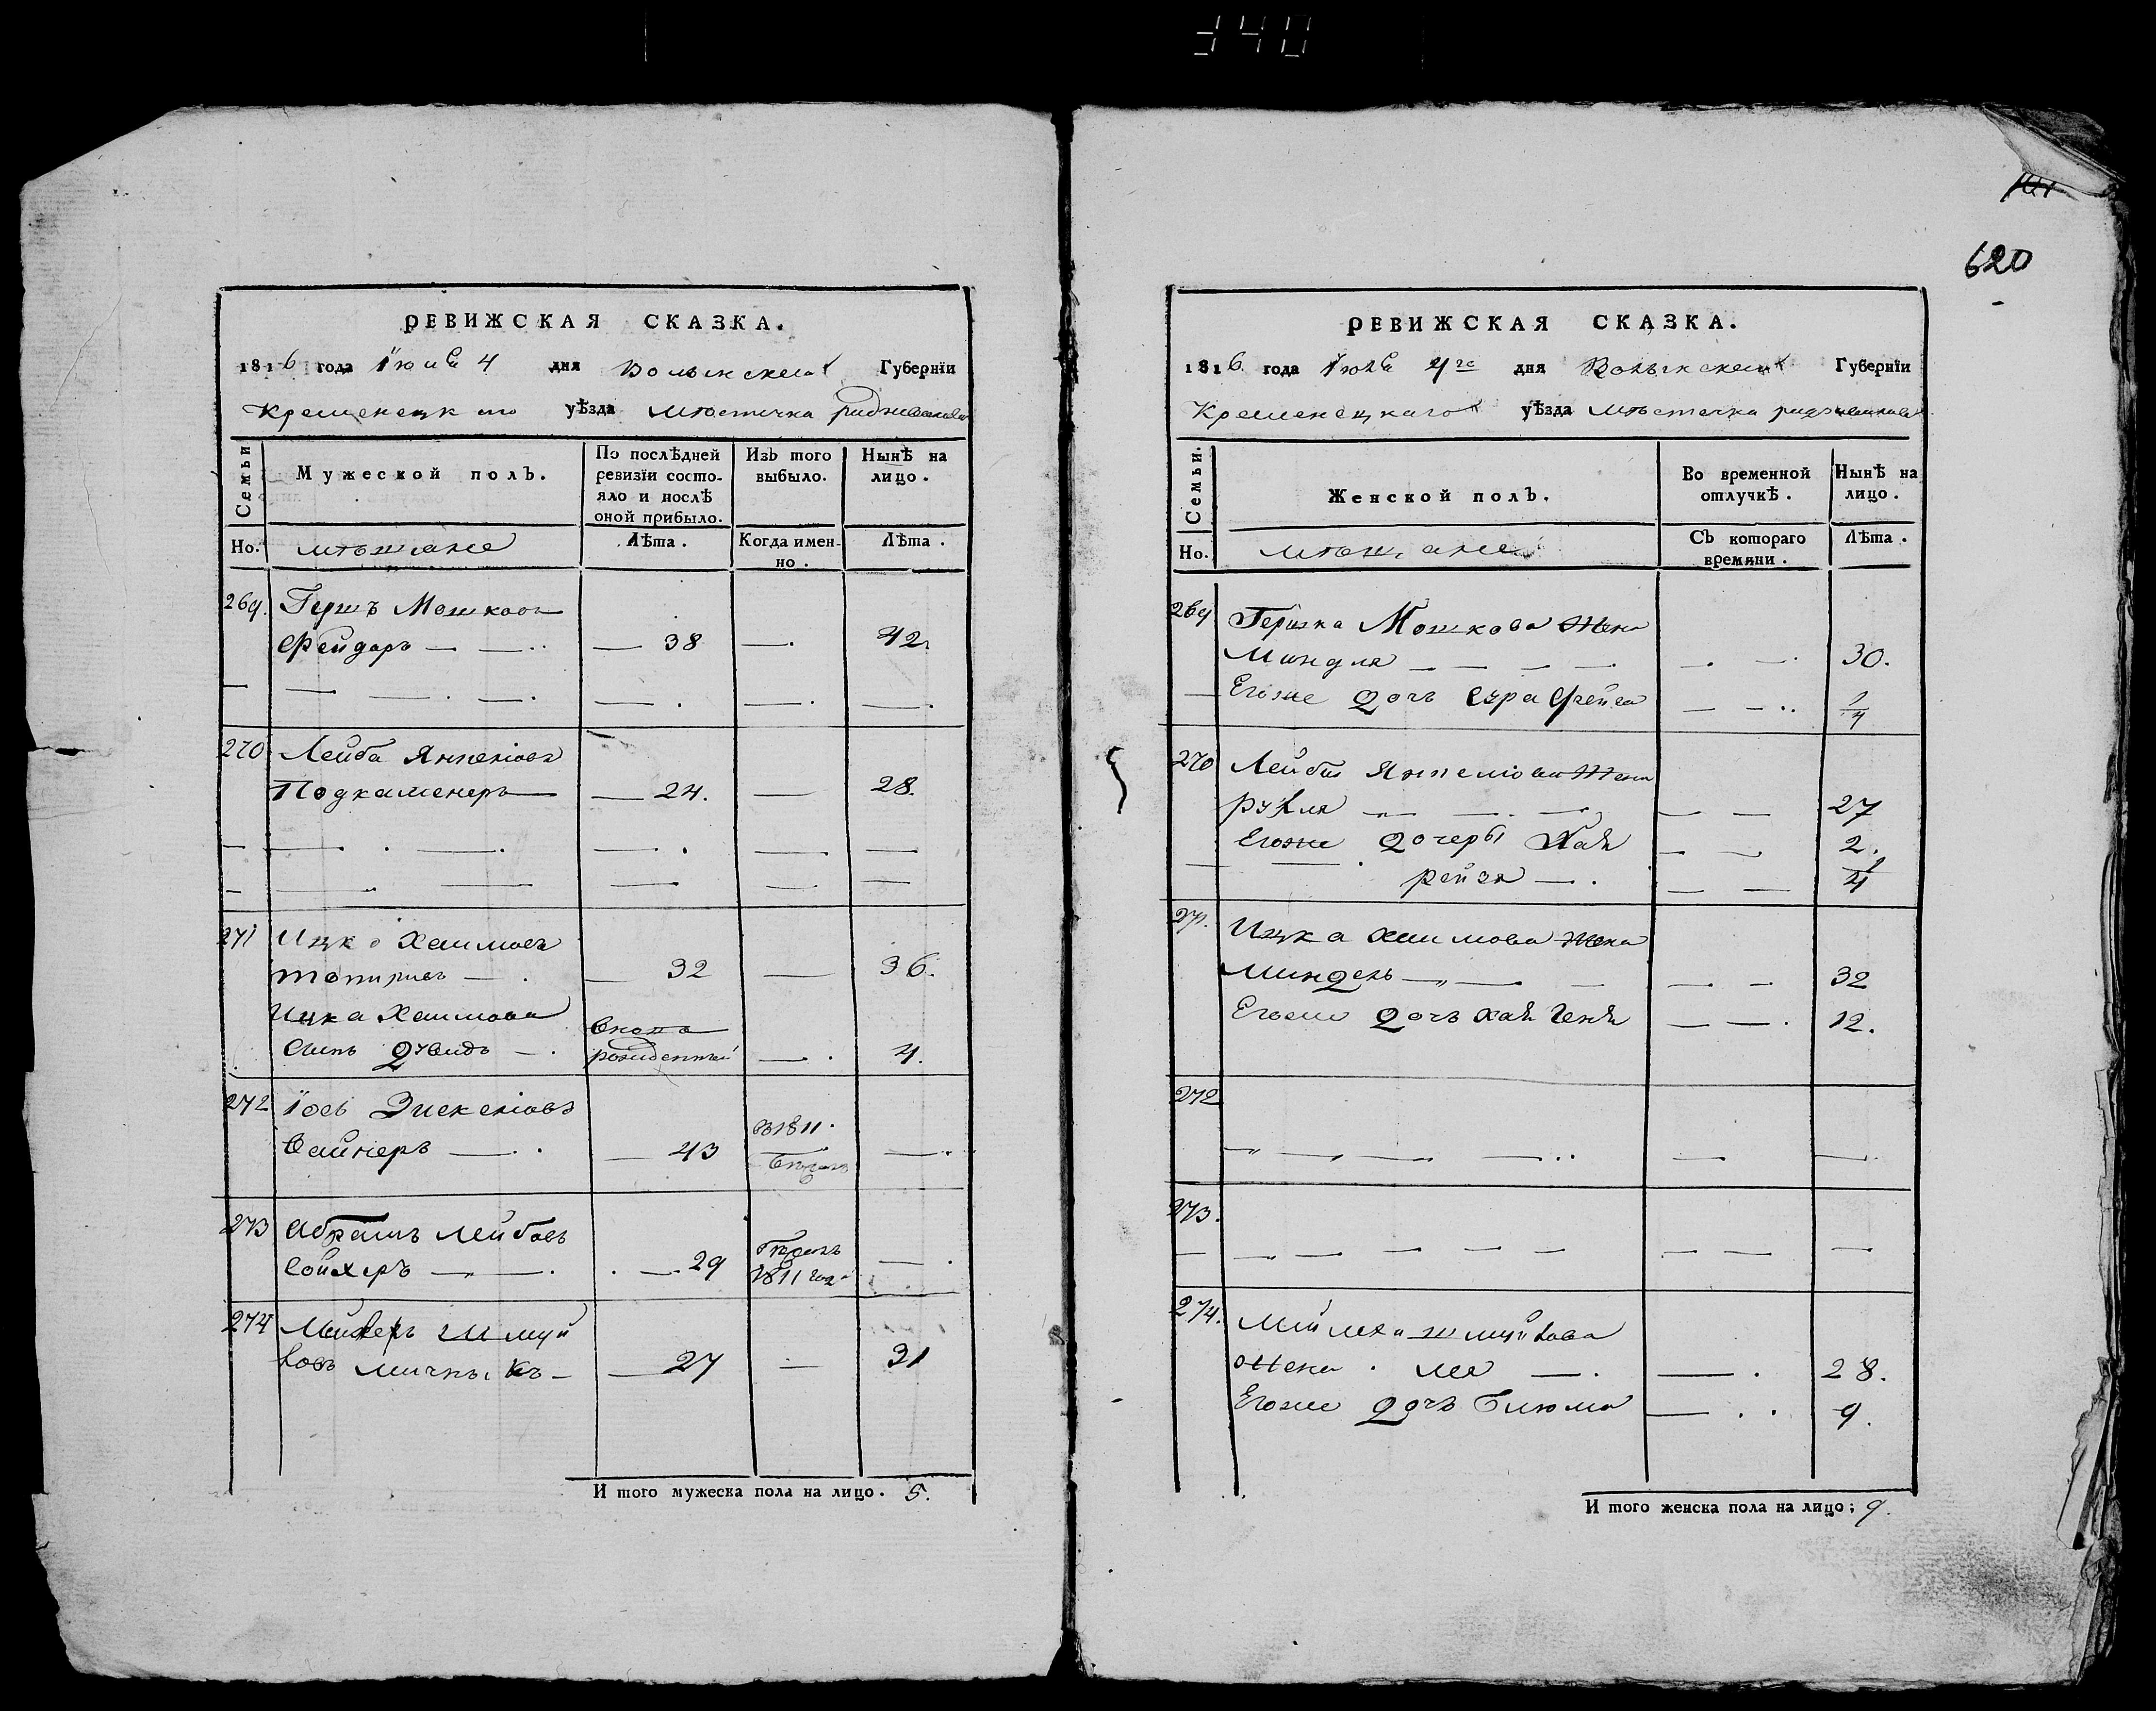 340
620
РЕВИЖСКАЯ СКАЗКА.
1816 года Іюля 4 дня Волынской Губернїи
Кременецкаго уѣзда Мѣстечка Радзивилова
Семьи
Мужеской полЪ.
По послѣдней ревизїи состояло и послѣ оной прибыло.
ИзЪ того выбыло.
Нынѣ на лицо.
Но.
мѣщане
Лѣта.
Когда именно.
Лѣта.
269. Гершъ Мошковъ
38 — 42
270 Лейба Янкеліовъ
Подкаменеръ — 24. — 28.
271 Ицко Хаимовъ
32 — 36.
Ицка Хаимова
Сынъ Дувидъ — вновь рожденный — 4.
272 Іось
Вайнеръ — 43 В 1811
273 Абрамъ Лейбовъ
Сойхеръ — 29 1811 года
274 Шмуй
ловъ 27 — 31
И того мужеска пола на лицо. 5.
РЕВИЖСКАЯ СКАЗКА.
1816 года Іюля 4го дня Волынской Губернїи
Кременецкаго уѣзда Мѣстечка Радзивилова
Семьи.
Женской полЪ.
Во временной отлучкѣ.
Нынѣ на лицо.
Но.
мѣщане
СЪ котораго времяни.
Лѣта.
269 Гершка Мошкова Жена
Миндля — 30.
Егоже Дочь Сура Фейга — 1/4
270 Лейбы Янкеліова Жена
Рухля — 27
Егоже Дочери Хая — 2.
Рейзя — 1/4
271. Ицка Хаимова Жена
Миндель — 32
Егоже Дочь Хая Геня — 12.
272
273.
274. Шмуйлова
Жена Лея — 28.
Егоже Дочь Блюма — 9.
И того женска пола на лицо; 9.